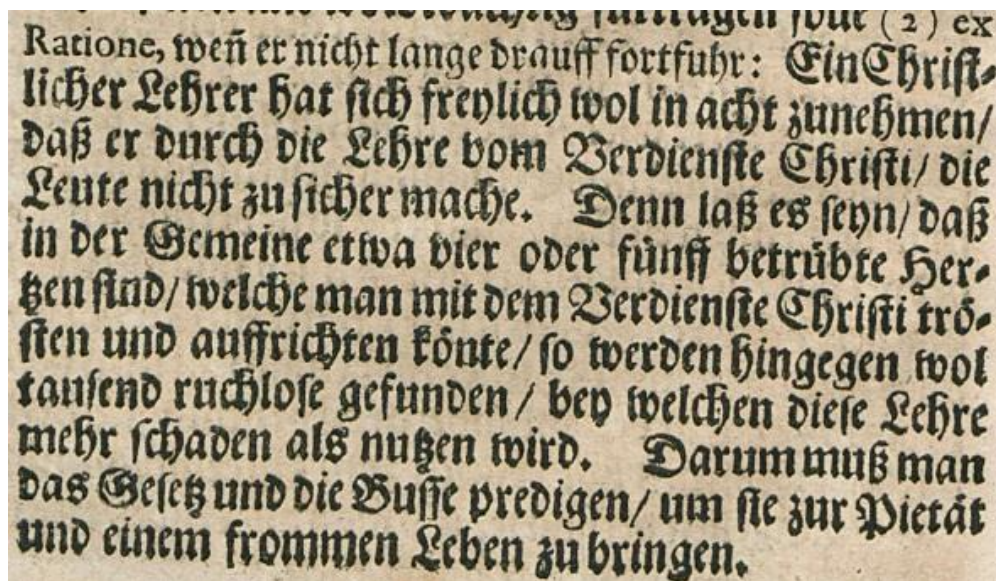 (2) ex
Ratione, weñ er nicht lange drauff fortfuhr: Ein Christ-
licher Lehrer hat sich freylich wol in acht zunehmen/
daß er durch die Lehre vom Verdienste Christi/ die
Leute nicht zu sicher mache. Denn laß es seyn/ daß
in der Gemeine etwa vier oder fünff betrübte Her-
tzen sind/ welche man mit dem Verdienste Christi trö-
sten und auffrichten könte/ so werden hingegen wol
tausend ruchlose gefunden/ bey welchen diese Lehre
mehr schaden als nutzen wird. Darum muß man
das Gesetz und die Busse predigen/ um sie zur Pietät
und einem frommen Leben zu bringen.